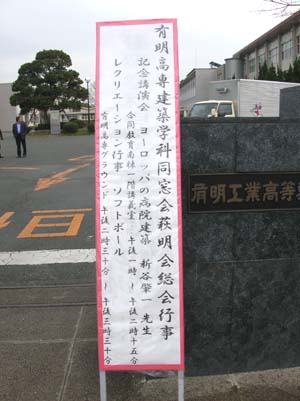 有明高専建築学科同窓会萩明会総会行事
記念講演会 ヨーロッパの病院建築 新谷肇一 先生
合同教育南棟一階講義室 午後一時〜午後二時十五分
レクリエーション行事 ソフトボール
有明高専グラウンド 午後二時三十分〜午後三時三十分
有明工業高等